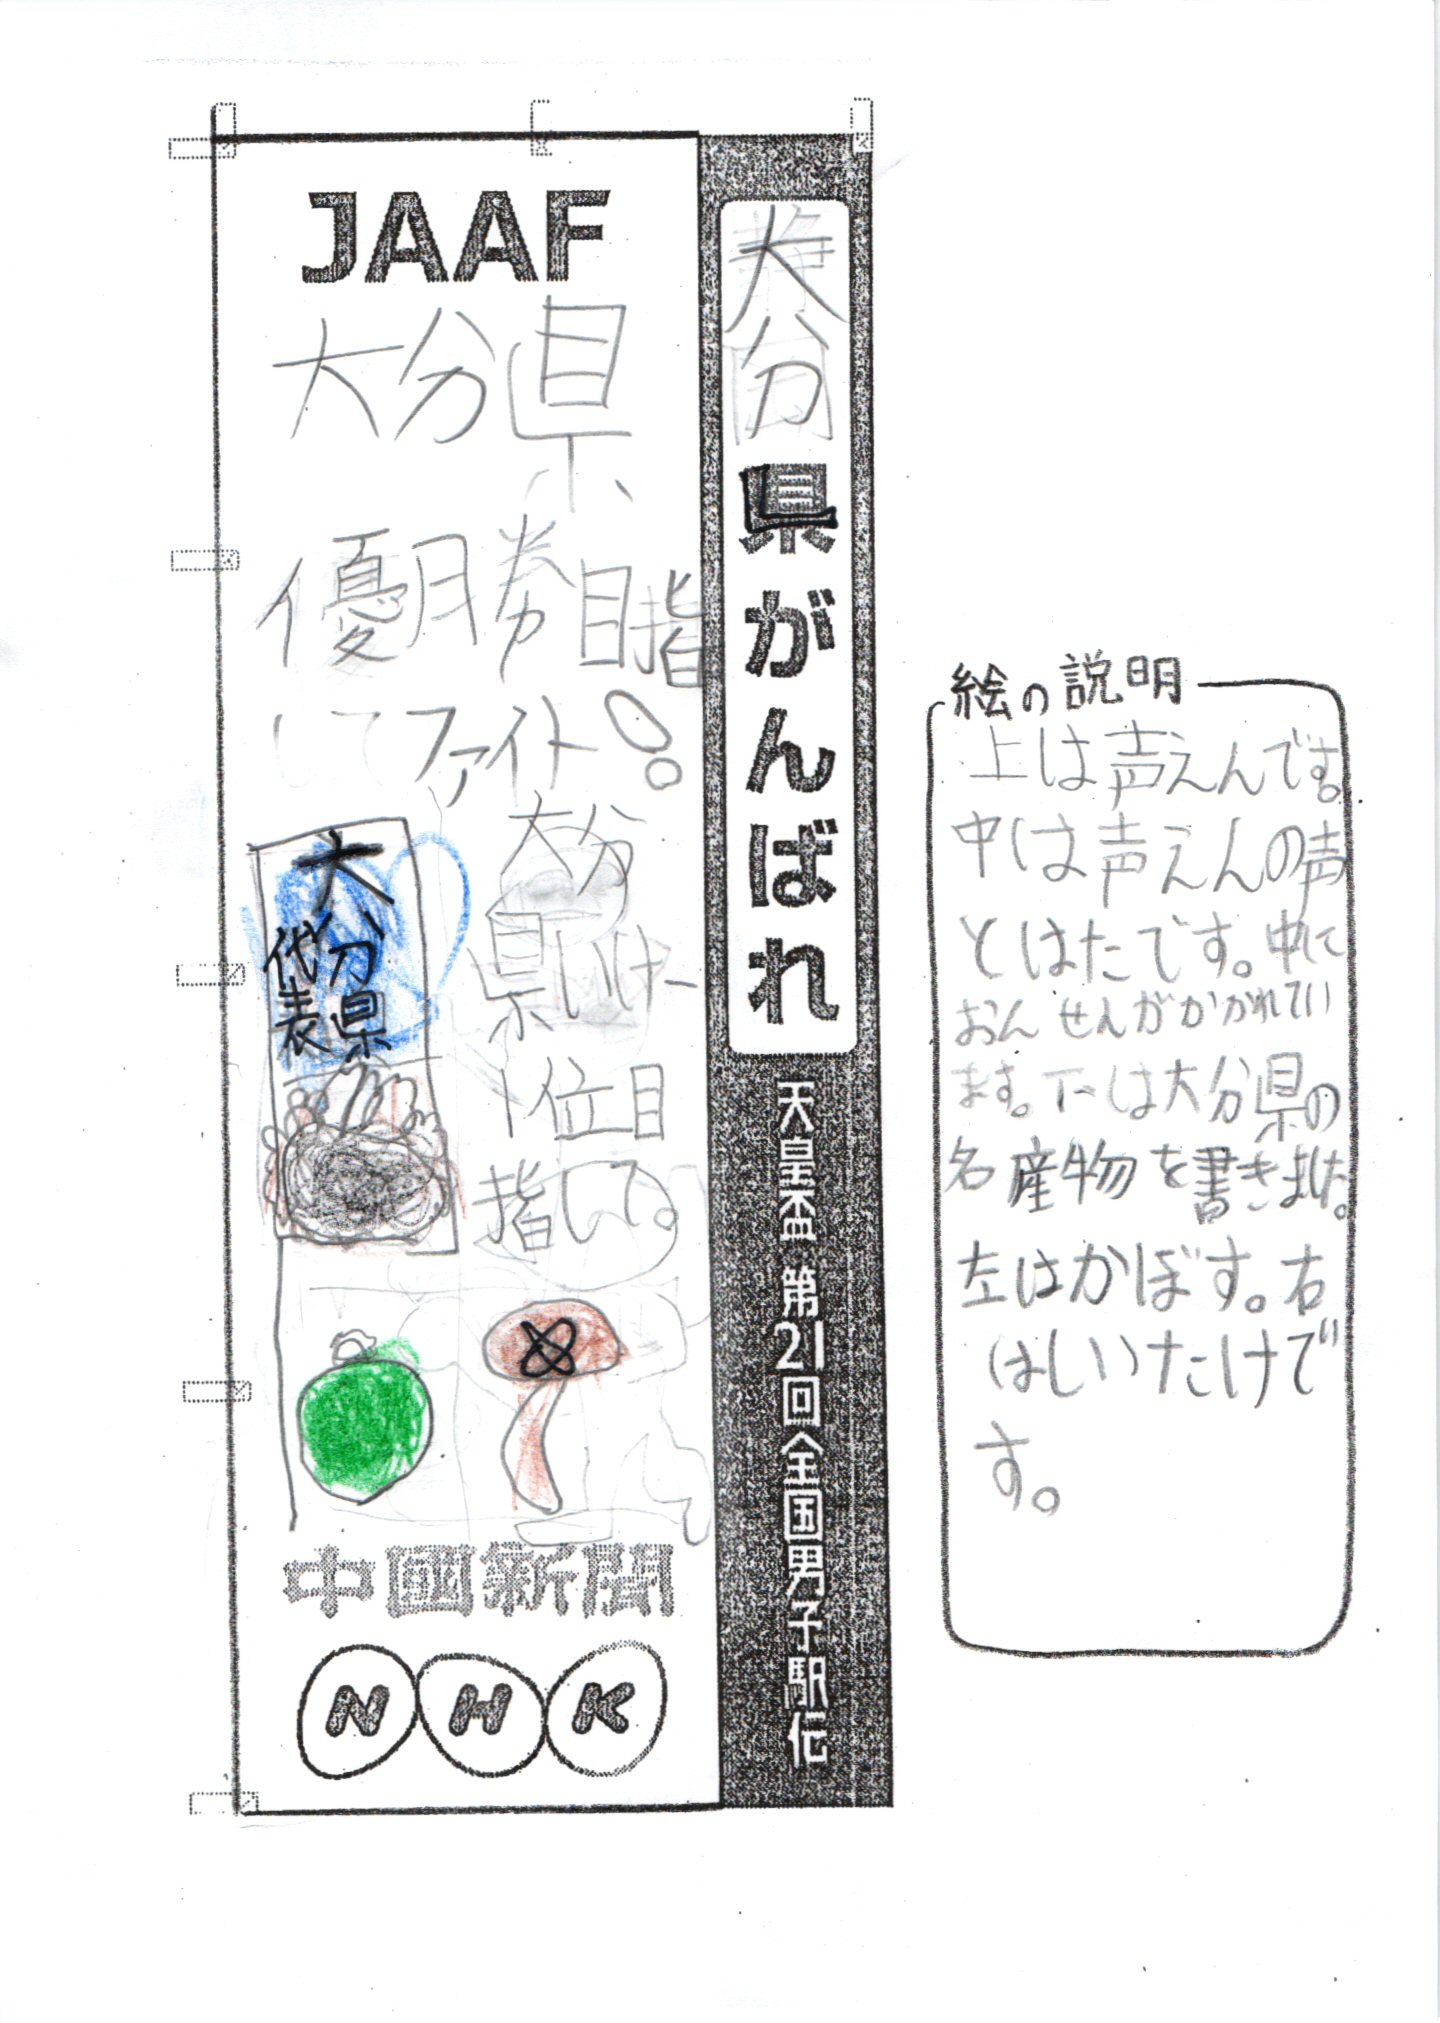 JAAF
大分県
優勝目指
してファイト!。
大分
県いけー
1位目
指して。
大分県
代表
中國新聞
NHK
大分県がんばれ
天皇盃 第21回全国男子駅伝
絵の説明
上は声えんです。
中は声えんの声
とはたです。中に
おんせんがかかれてい
ます。下は大分県の
名産物を書きました。
左はかぼす。右
はしいたけで
す。